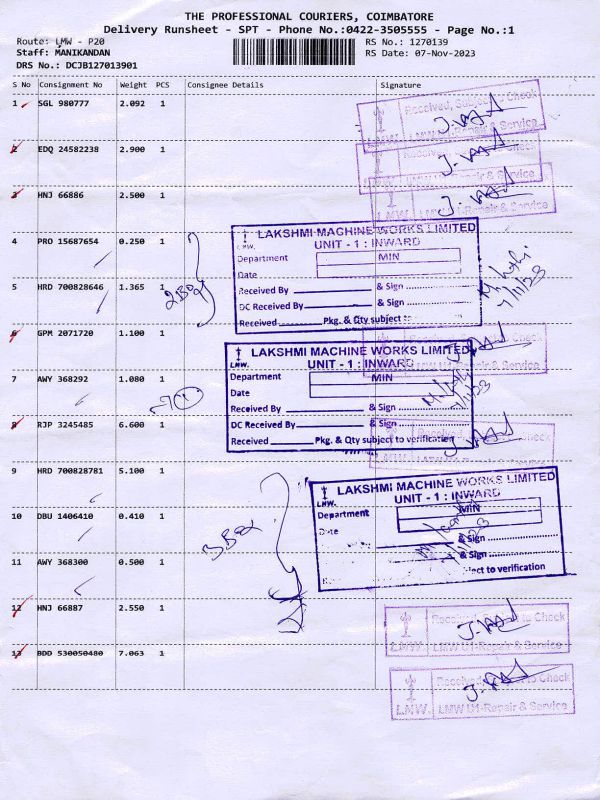 THE PROFESSIONAL COURIERS, COIMBATORE
Delivery Runsheet - SPT - Phone No.:0422-3505555 - Page No.:1
Route: LMW - P20
RS No.: 1270139
Staff: MANIKANDAN
RS Date: 07-Nov-2023
DRS No.: DCJB127013901
S No Consignment No Weight PCS Consignee Details Signature
1 SGL 980777 2.092 1
Received, Subject to Check
LMW U1-Repair & Service
2 EDQ 24582238 2.900 1
3 HNJ 66886 2.500 1
LMW U1-Repair & Service
4 PRO 15687654 0.250 1
LAKSHMI MACHINE WORKS LIMITED
UNIT - 1 : INWARD
LMW.
Department MIN
Date
5 HRD 700828646 1.365 1
2 Box
Received By & Sign
7/11/23
DC Received By & Sign
Received Pkg. & Qty subject to
6 GPM 2071720 1.100 1
LAKSHMI MACHINE WORKS LIMITED
UNIT - 1 : INWARD
LMW.
7 AWY 368292 1.080 1
Department MIN
Date
Received By & Sign
8 RJP 3245485 6.600 1
DC Received By & Sign
Received Pkg. & Qty subject to verification
9 HRD 700828781 5.100 1
LAKSHMI MACHINE WORKS LIMITED
UNIT - 1 : INWARD
LMW.
10 DBU 1406410 0.410 1
Department MIN
Date
3 Box
& Sign
11 AWY 368300 0.500 1
& Sign
ject to verification
12 HNJ 66887 2.550 1
Received, Subject to Check
LMW. LMW U1-Repair & Service
13 BDD 530050480 7.063 1
Received, Subject to Check
LMW. LMW U1-Repair & Service